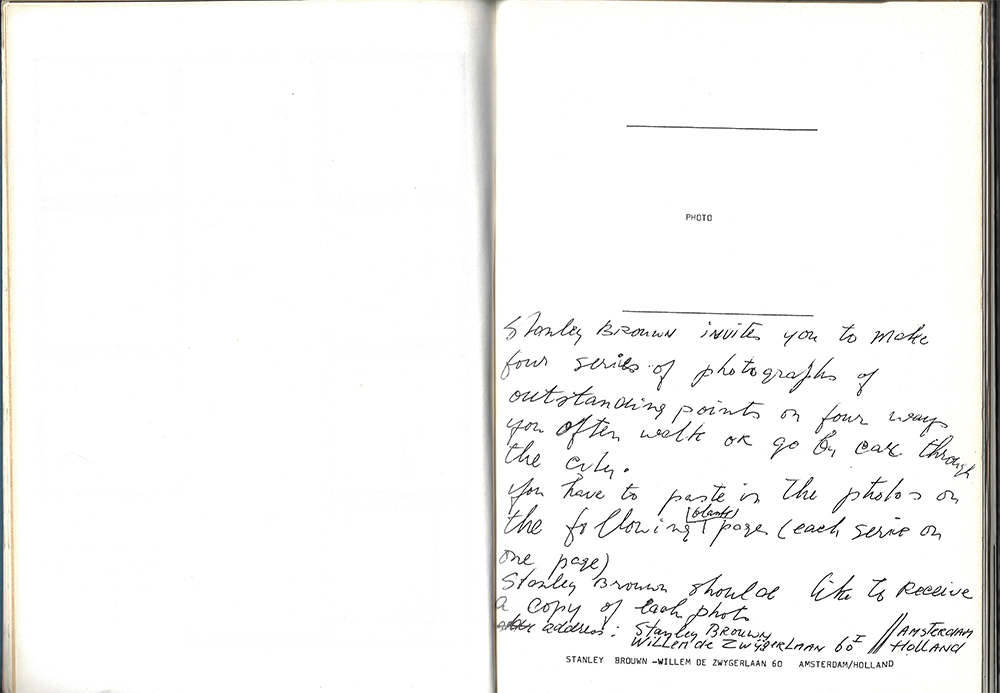 PHOTO
Stanley BROUWN invites you to make
four series of photographs of
outstanding points on four ways
you often walk or go by car through
the city.
you have to paste in the photos on
the following (blank) page (each serie on
one page)
Stanley Brouwn should like to receive
a copy of each photo
address: Stanley BROUWN
Willem de Zwÿgerlaan 60 I // AMSTERDAM HOLLAND
STANLEY BROUWN -WILLEM DE ZWYGERLAAN 60 AMSTERDAM/HOLLAND